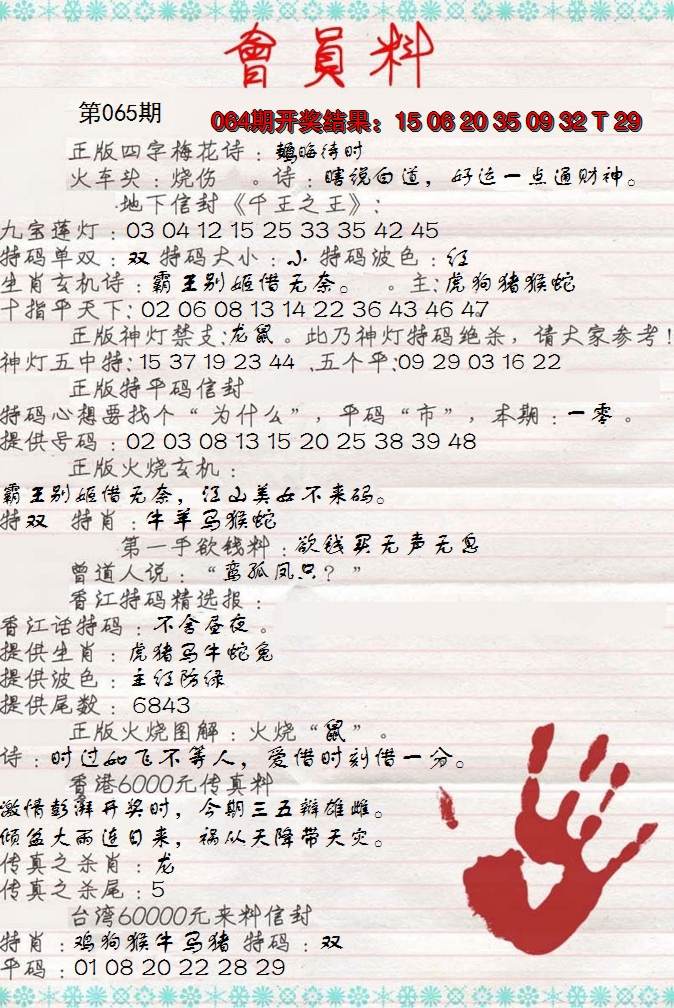 會員料
第065期
064期开奖结果：15 06 20 35 09 32 T 29
正版四字梅花诗：鹅晦待时
火车头：烧伤 。诗：瞎说白道，好运一点通财神。
地下信封《千王之王》：
九宝莲灯：03 04 12 15 25 33 35 42 45
特码单双：双 特码大小：小 特码波色：红
生肖玄机诗：霸王别姬借无奈。 。主：虎狗猪猴蛇
十指平天下：02 06 08 13 14 22 36 43 46 47
正版神灯禁支：龙鼠。此乃神灯特码绝杀，请大家参考！
神灯五中特：15 37 19 23 44 .五个平：09 29 03 16 22
正版特平码信封
特码心想要找个“为什么”，平码“市”，本期：一零。
提供号码：02 03 08 13 15 20 25 38 39 48
正版火烧玄机：
霸王别姬借无奈，江山美女不来码。
特双 特肖：牛羊马猴蛇
第一手欲钱料：欲钱买无声无息
曾道人说：“鸾孤凤只？”
香江特码精选报：
香江话特码：不舍昼夜。
提供生肖：虎猪马牛蛇兔
提供波色：主红防绿
提供尾数：6843
正版火烧图解：火烧“鼠”。
诗：时过如飞不等人，爱惜时刻借一分。
香港6000元传真料
激情彭湃开奖时，今期三五辩雄雌。
倾盆大雨连日来，祸从天降带天灾。
传真之杀肖：龙
传真之杀尾：5
台湾60000元来料信封
特肖：鸡狗猴牛马猪 特码：双
平码：01 08 20 22 28 29